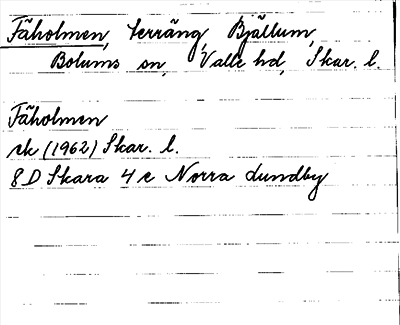 Fäholmen, terräng, Bjällum,
Bolums sn, Valle hd, Skar. l.
Fäholmen
rk (1962) Skar. l.
8D Skara 4c Norra Lundby